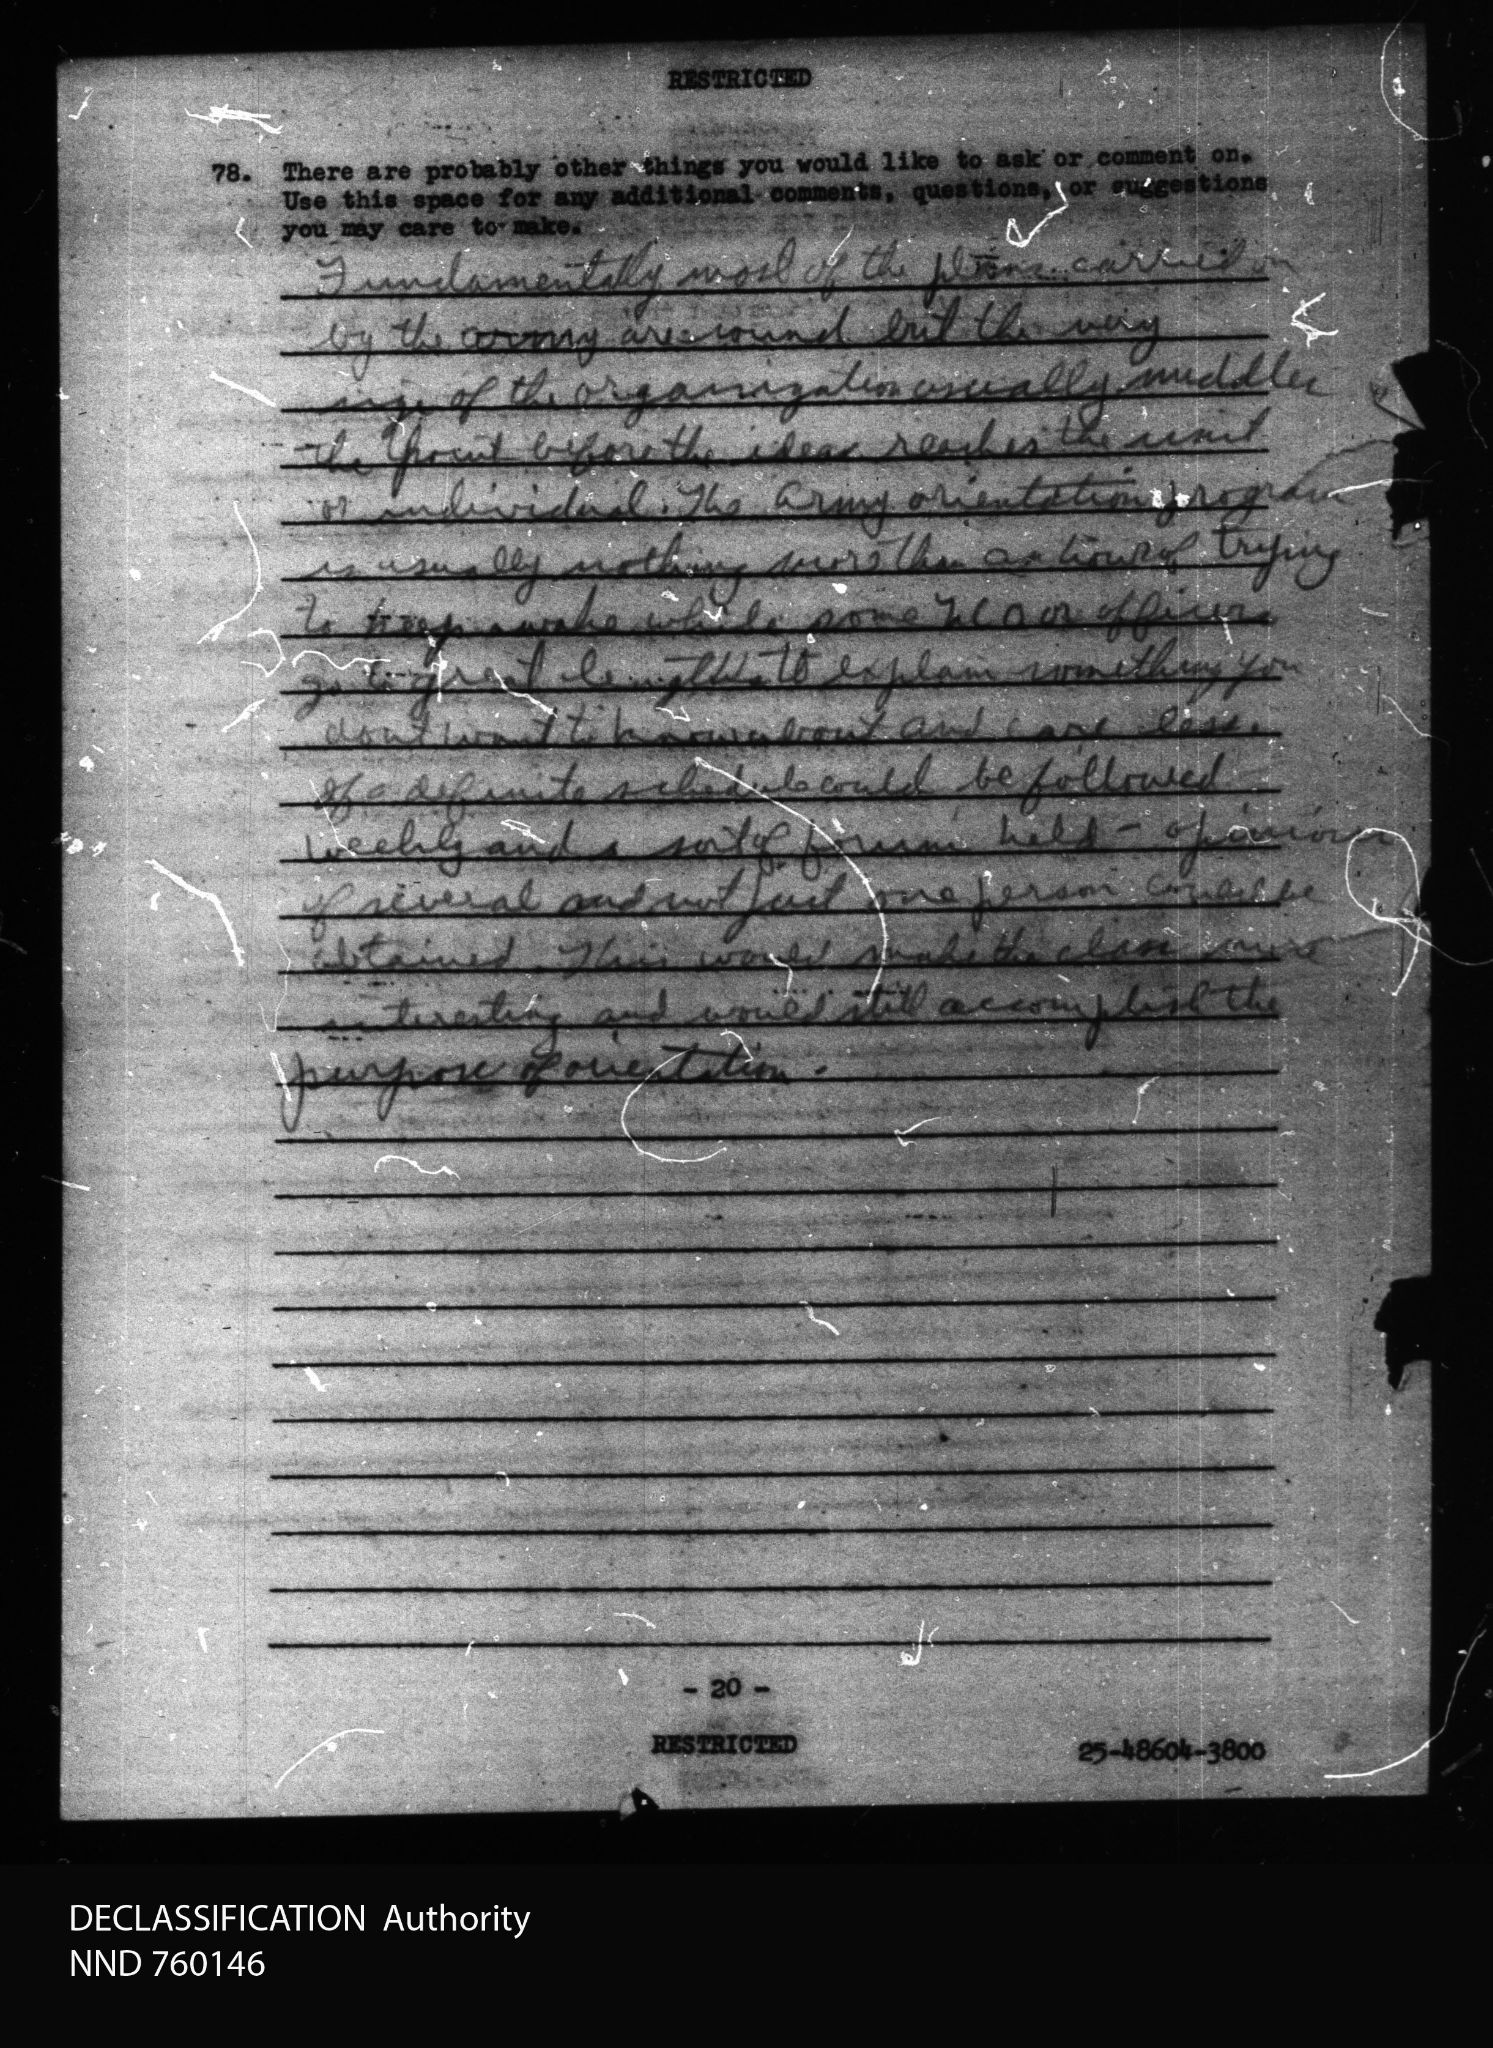 RESTRICTED
78. There are probably other things you would like to ask or comment on.
Use this space for any additional comments, questions, or suggestions
you may care to make.
Fundamentally most of the plans carried on
by the army are sound but the very
size of the organization usually muddles
the point before the idea reaches the unit
or individual. The Army orientation program
is usually nothing more than an hour of trying
to keep awake while some NCO or officer
go to great lengths to explain something you
don't want to know about and care less.
If a definite schedule could be followed
weekly and a sort of forum held - opinions
of several and not just one person could be
obtained. This would make the class more
interesting and would still accomplish the
purpose of orientation.
- 20 -
RESTRICTED
25-48604-3800
DECLASSIFICATION Authority
NND 760146